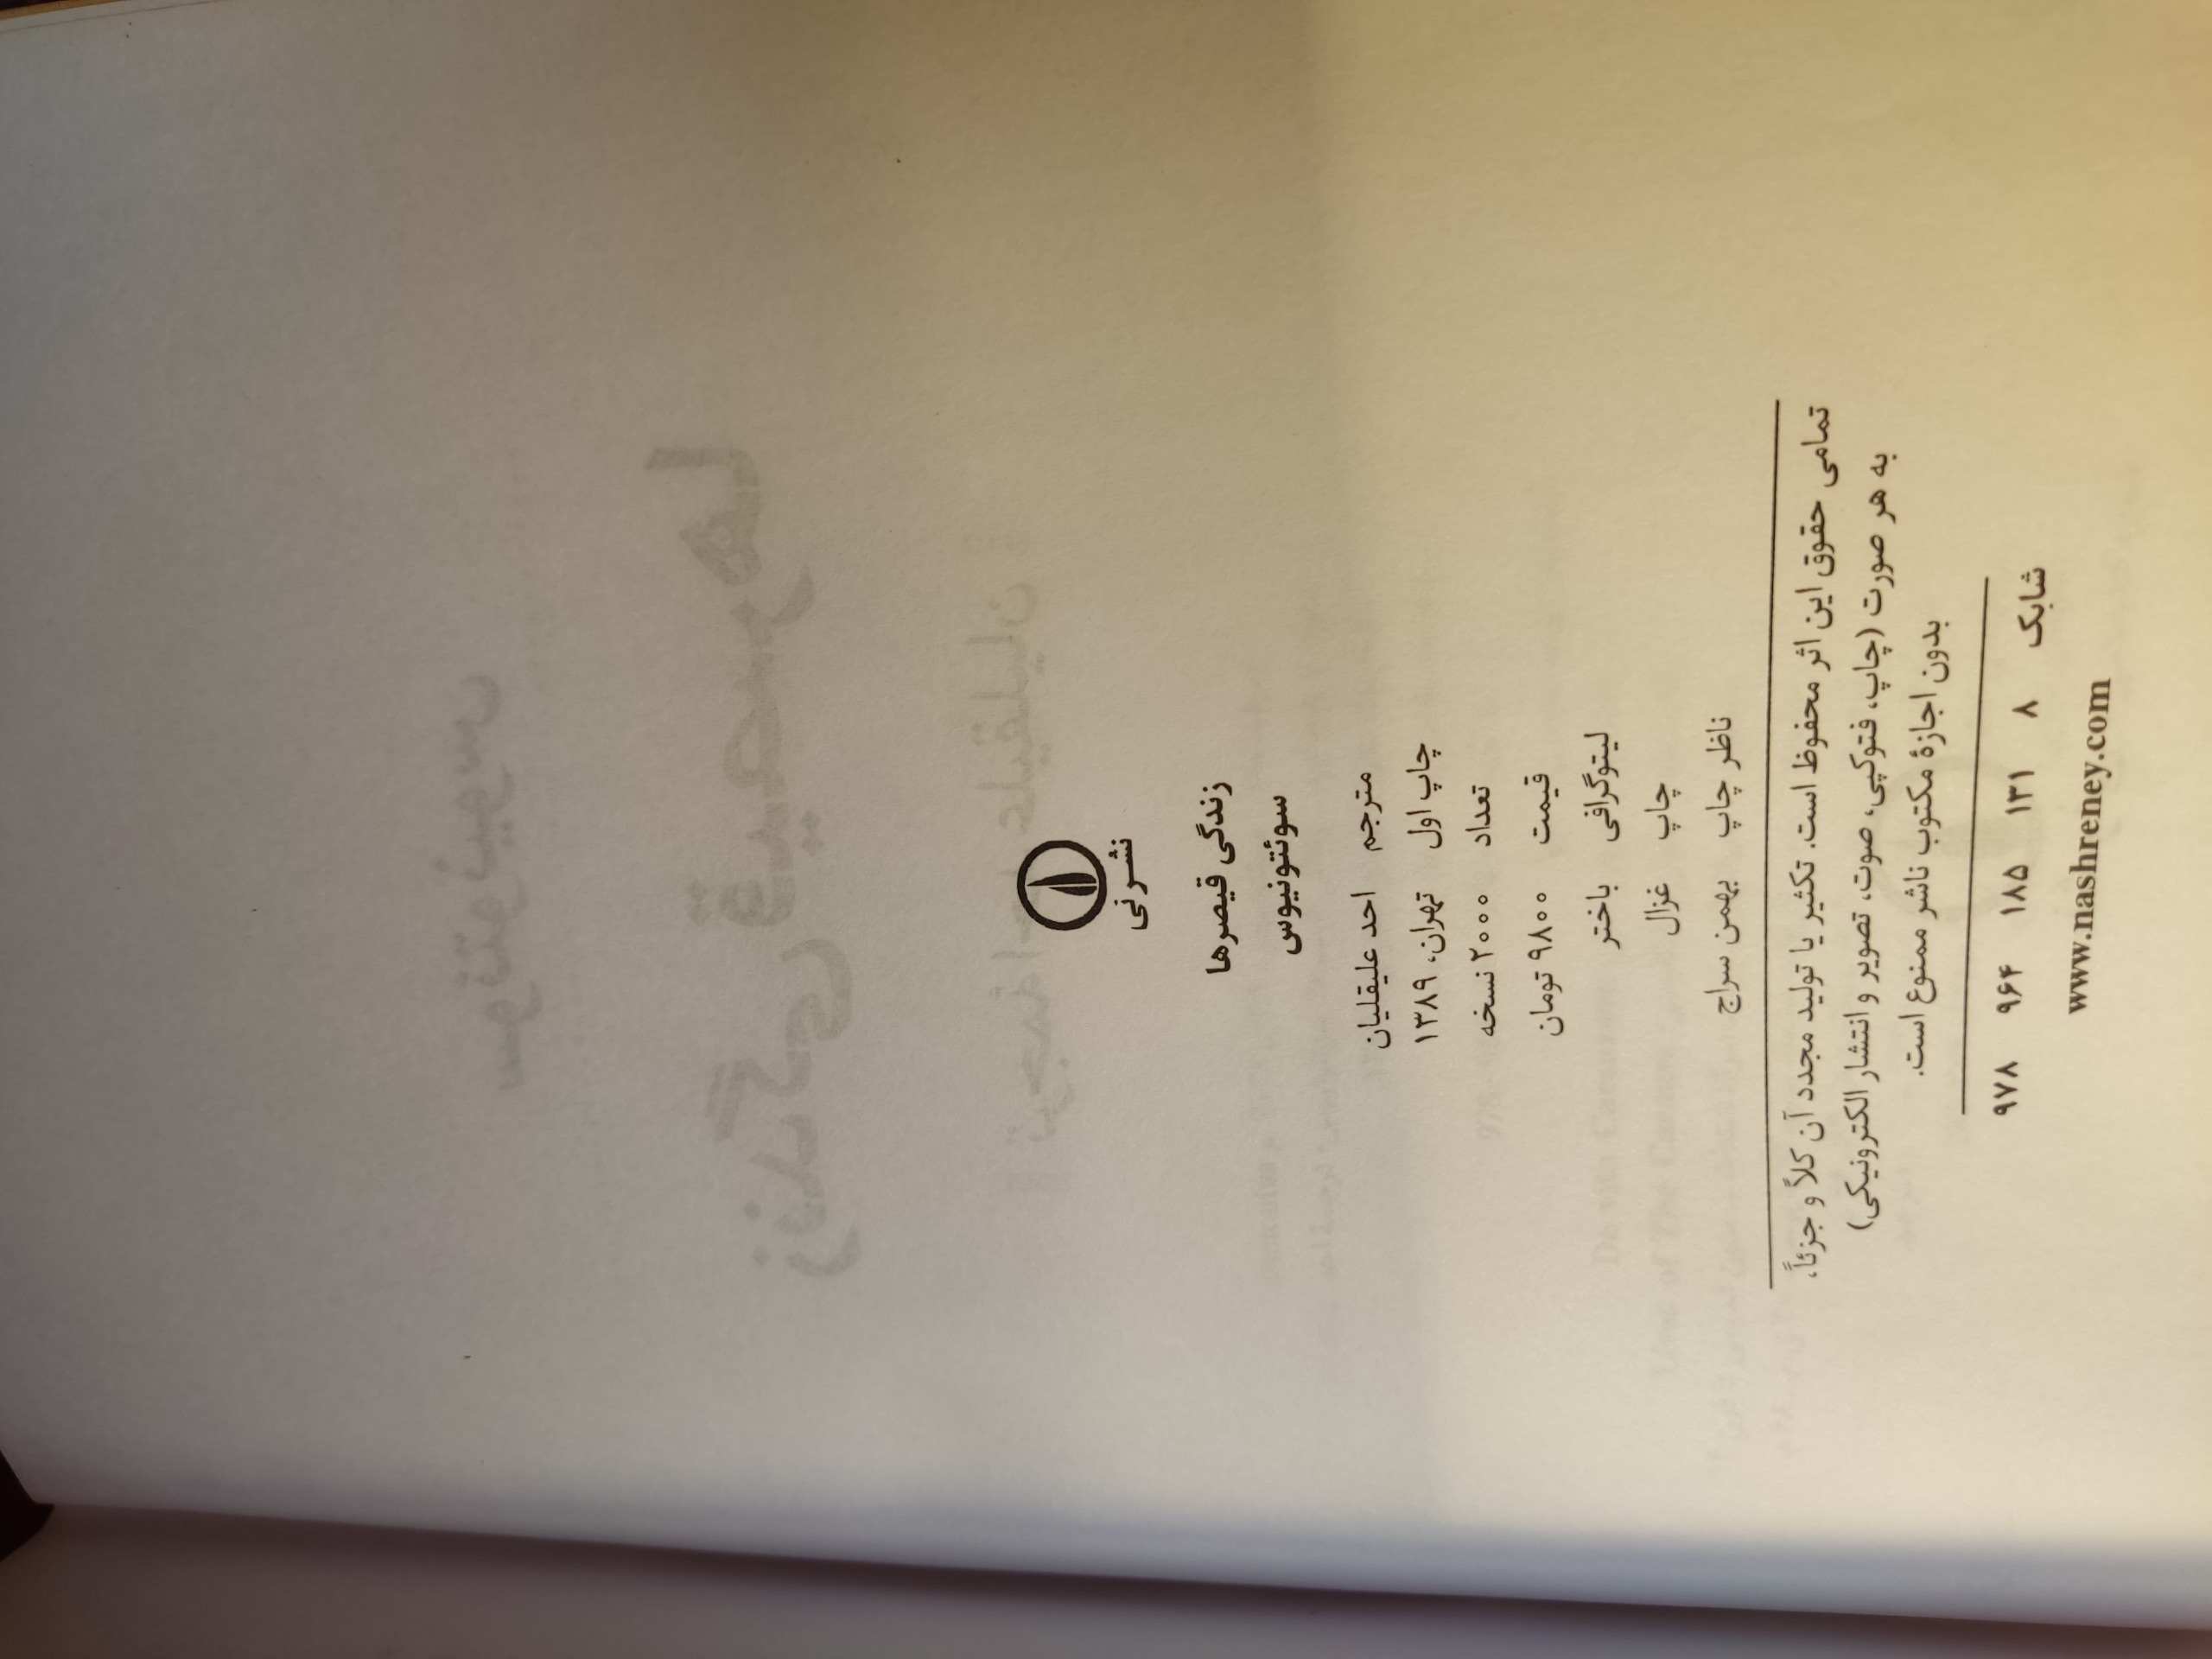 نشر نی
زندگی قیصرها
سوئتونیوس
مترجم احد علیقلیان
چاپ اول تهران، ۱۳۸۹
تعداد ۲۰۰۰ نسخه
قیمت ۹۸۰۰ تومان
لیتوگرافی باختر
چاپ غزال
ناظر چاپ بهمن سراج
تمامی حقوق این اثر محفوظ است. تکثیر یا تولید مجدد آن کلاً و جزئاً،
به هر صورت (چاپ، فتوکپی، صوت، تصویر و انتشار الکترونیکی)
بدون اجازهٔ مکتوب ناشر ممنوع است.
شابک ۸ ۱۳۱ ۱۸۵ ۹۶۴ ۹۷۸
www.nashreney.com